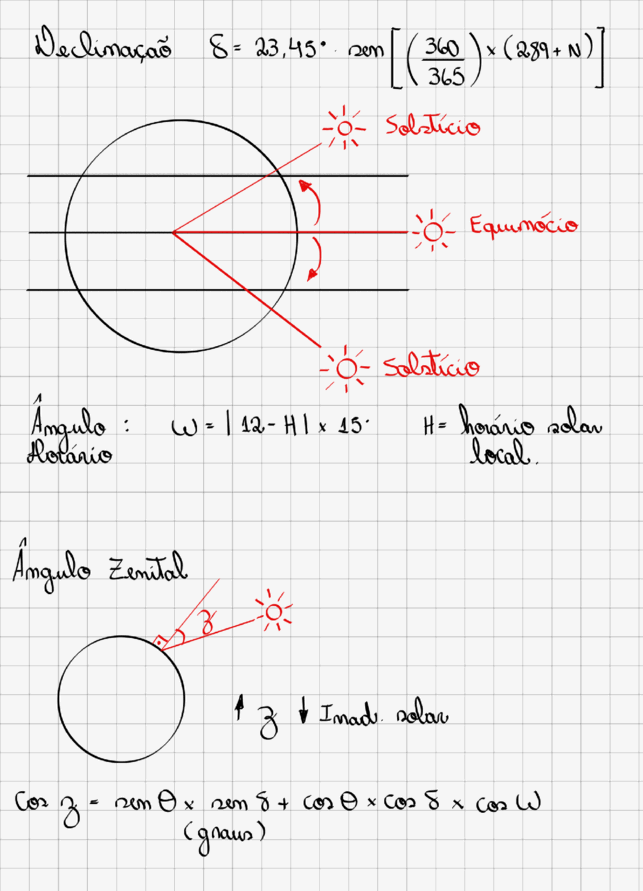 Declinação δ = 23,45° . sen [(360/365) × (289 + N)]
Solstício
Equinócio
Solstício
Ângulo : W = | 12 - H | × 15° H = horário solar
Horário local.
Ângulo Zenital
z
↑ z ↓ Irrad. solar
Cos z = sen θ × sen δ + cos θ × cos δ × cos W
(graus)